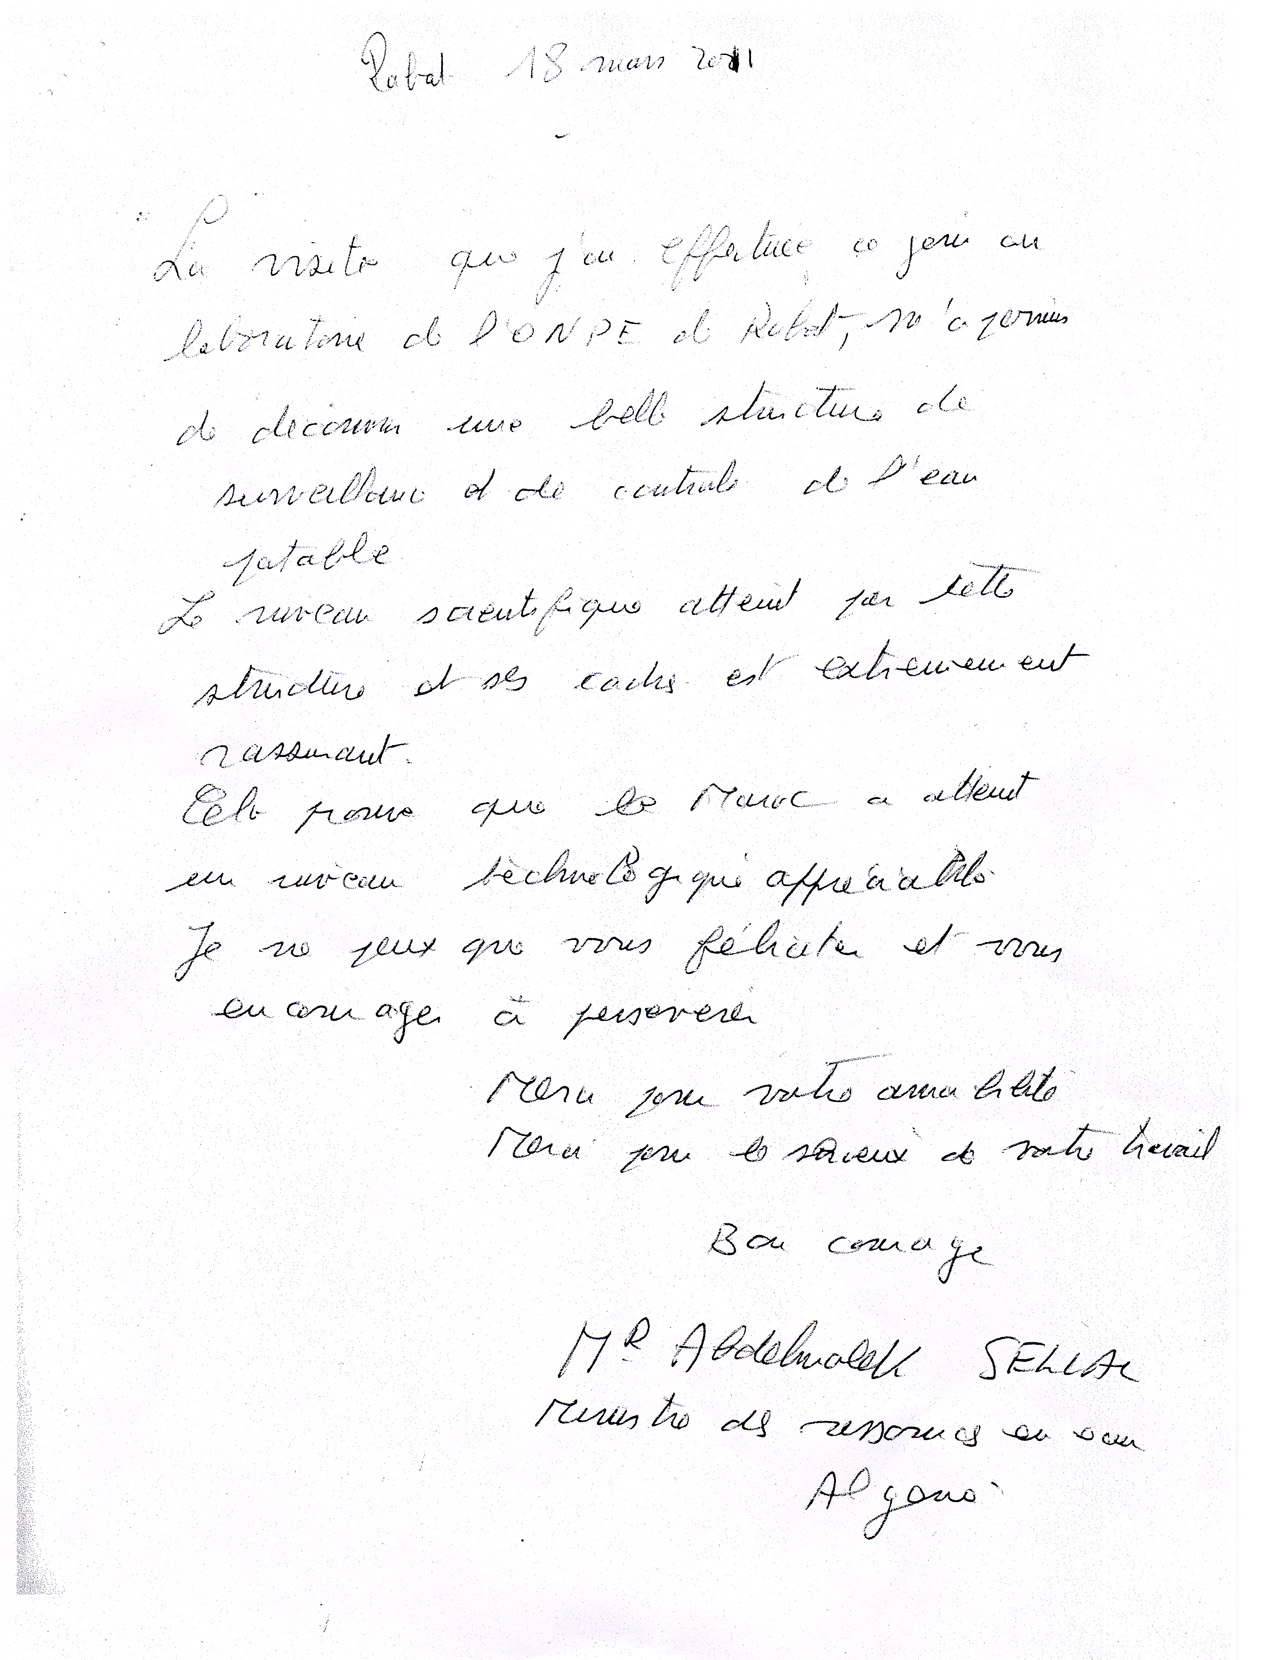 Rabat 18 mars 2011
La visite que j'ai effectuée ce jour au
laboratoire de l'ONPE de Rabat, m'a permis
de découvrir une belle structure de
surveillance et de controle de l'eau
potable
Le niveau scientifique atteint par cette
structure et ses cadres est extremement
rassurant.
Cela prouve que le Maroc a atteint
un niveau technologique appréciable
Je ne peux que vous féliciter et vous
encourager à perseverer
Merci pour votre amabilité
Merci pour le sérieux de votre travail
Bon courage
Mr Abdelmalek SELLAL
Ministre des ressources en eau
Algerie